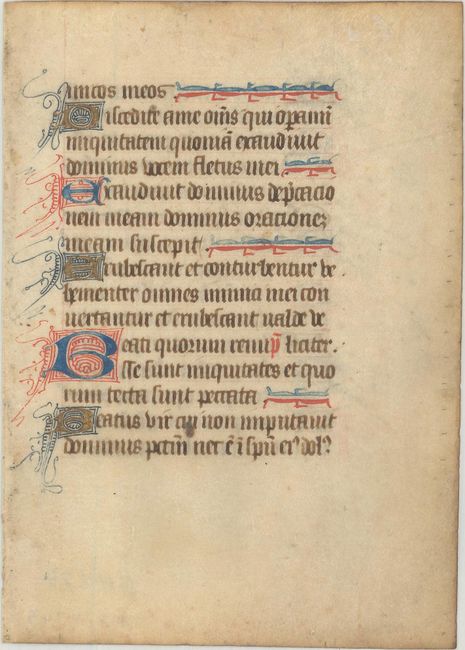 imicos meos
Discedite a me om̃s qui oꝑamĩ
iniquitatem quoniã exaudiuit
dominus vocem fletus mei
Exaudiuit dominus dep̃cacio
nem meam dominus orationeʒ
meam suscepit
Erubescant et conturbentur ve
hementer omnes inimici mei con
uertantur et erubescant ualde ve
Beati quorum remiſ p̃s lociter.
sse sunt iniquitates et quo
rum tecta sunt peccata
Beatus vir cui non imputauit
dominus pctm̃ nec ẽ ĩ spũ eiꝰ dolꝰ